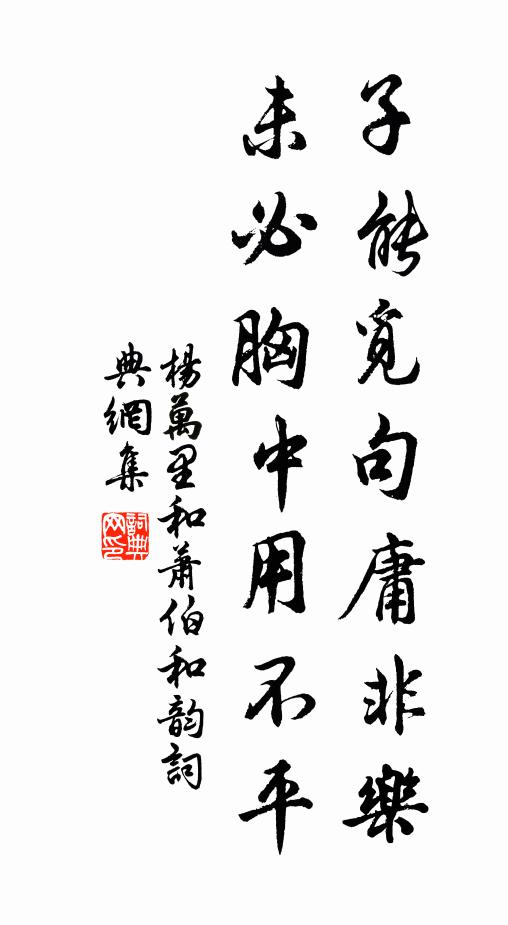 子能覓句庸非樂
未必胸中用不平
楊萬里和蕭伯和韵詞
典網集
詞典网印